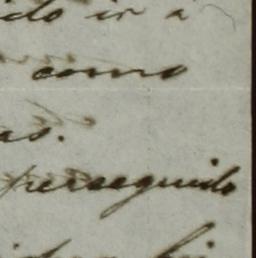 ido ir a
como
as.
perseguido